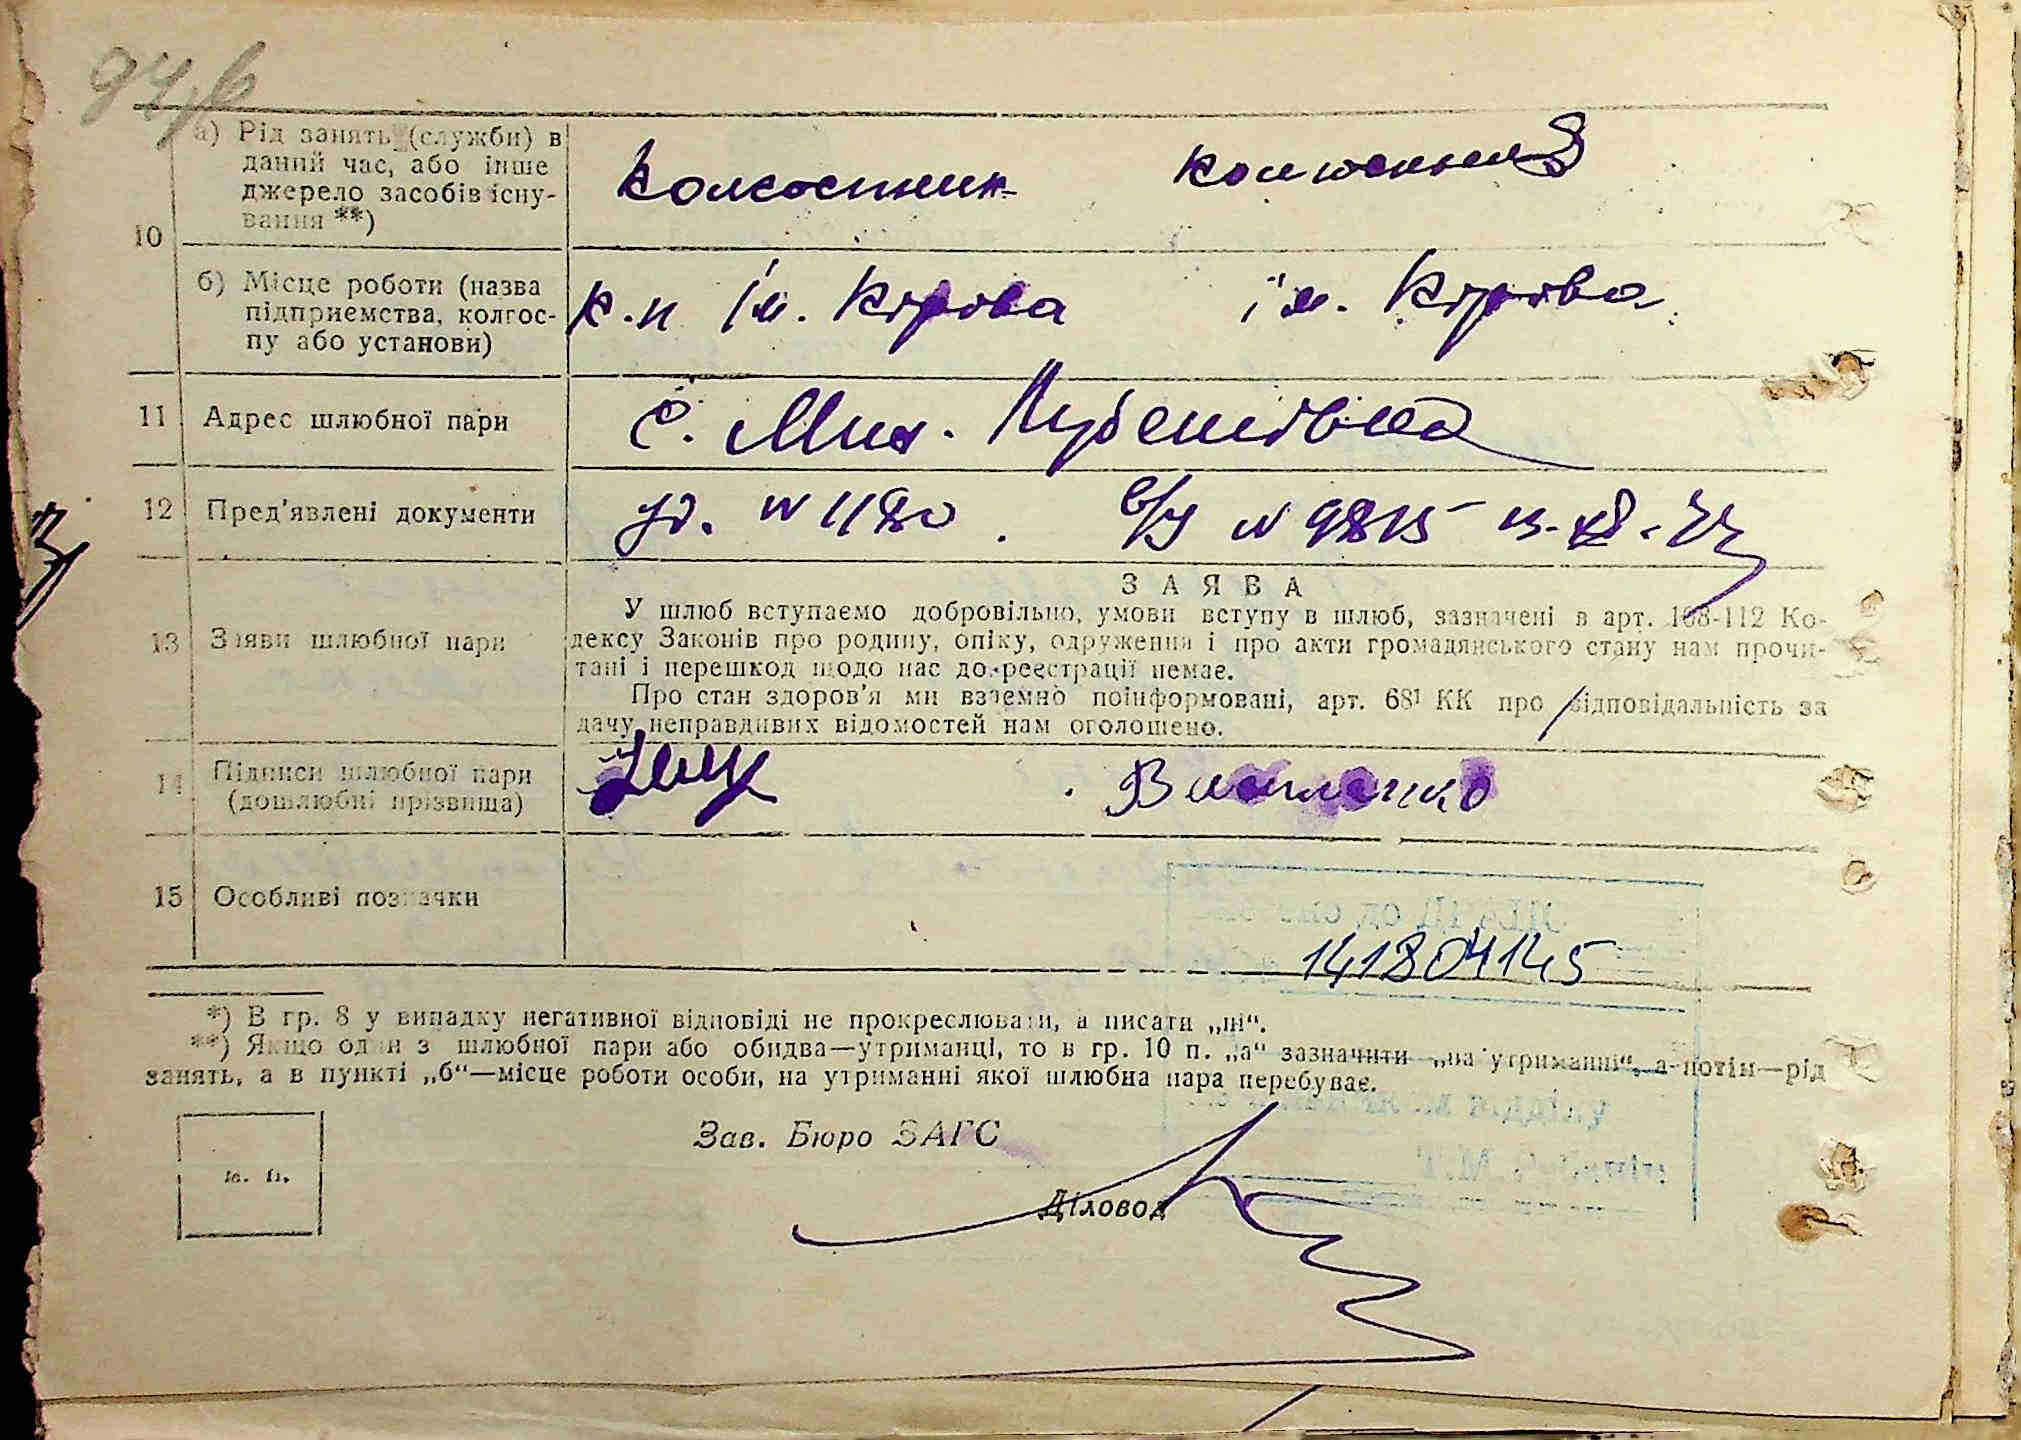 94 в
а) Рід занять (служби) в
даний час, або інше
джерело засобів існу-
вання **)
колгоспник
10
б) Місце роботи (назва
підприємства, колгос-
пу або установи)
к.п ім. Кірова ім. Кірова
11 Адрес шлюбної пари
с. Мих.
12 Пред'явлені документи
N 1180 N 9815
13 Заяви шлюбної пари
ЗАЯВА
У шлюб вступаємо добровільно, умови вступу в шлюб, зазначені в арт. 108-112 Ко-
дексу Законів про родину, опіку, одруження і про акти громадянського стану нам прочи-
тані і перешкод щодо нас до реєстрації немає.
Про стан здоров'я ми взаємно поінформовані, арт. 68¹ КК про відповідальність за
дачу неправдивих відомостей нам оголошено.
14 Підписи шлюбної пари
(дошлюбні прізвища)
15 Особливі позначки
141804145
*) В гр. 8 у випадку негативної відповіді не прокреслювати, а писати „ні“.
**) Якщо один з шлюбної пари або обидва—утриманці, то в гр. 10 п. „а“ зазначити „на утриманні“, а потім—рід
занять, а в пункті „б“—місце роботи особи, на утриманні якої шлюбна пара перебуває.
Зав. Бюро ЗАГС
м. п.
Діловод